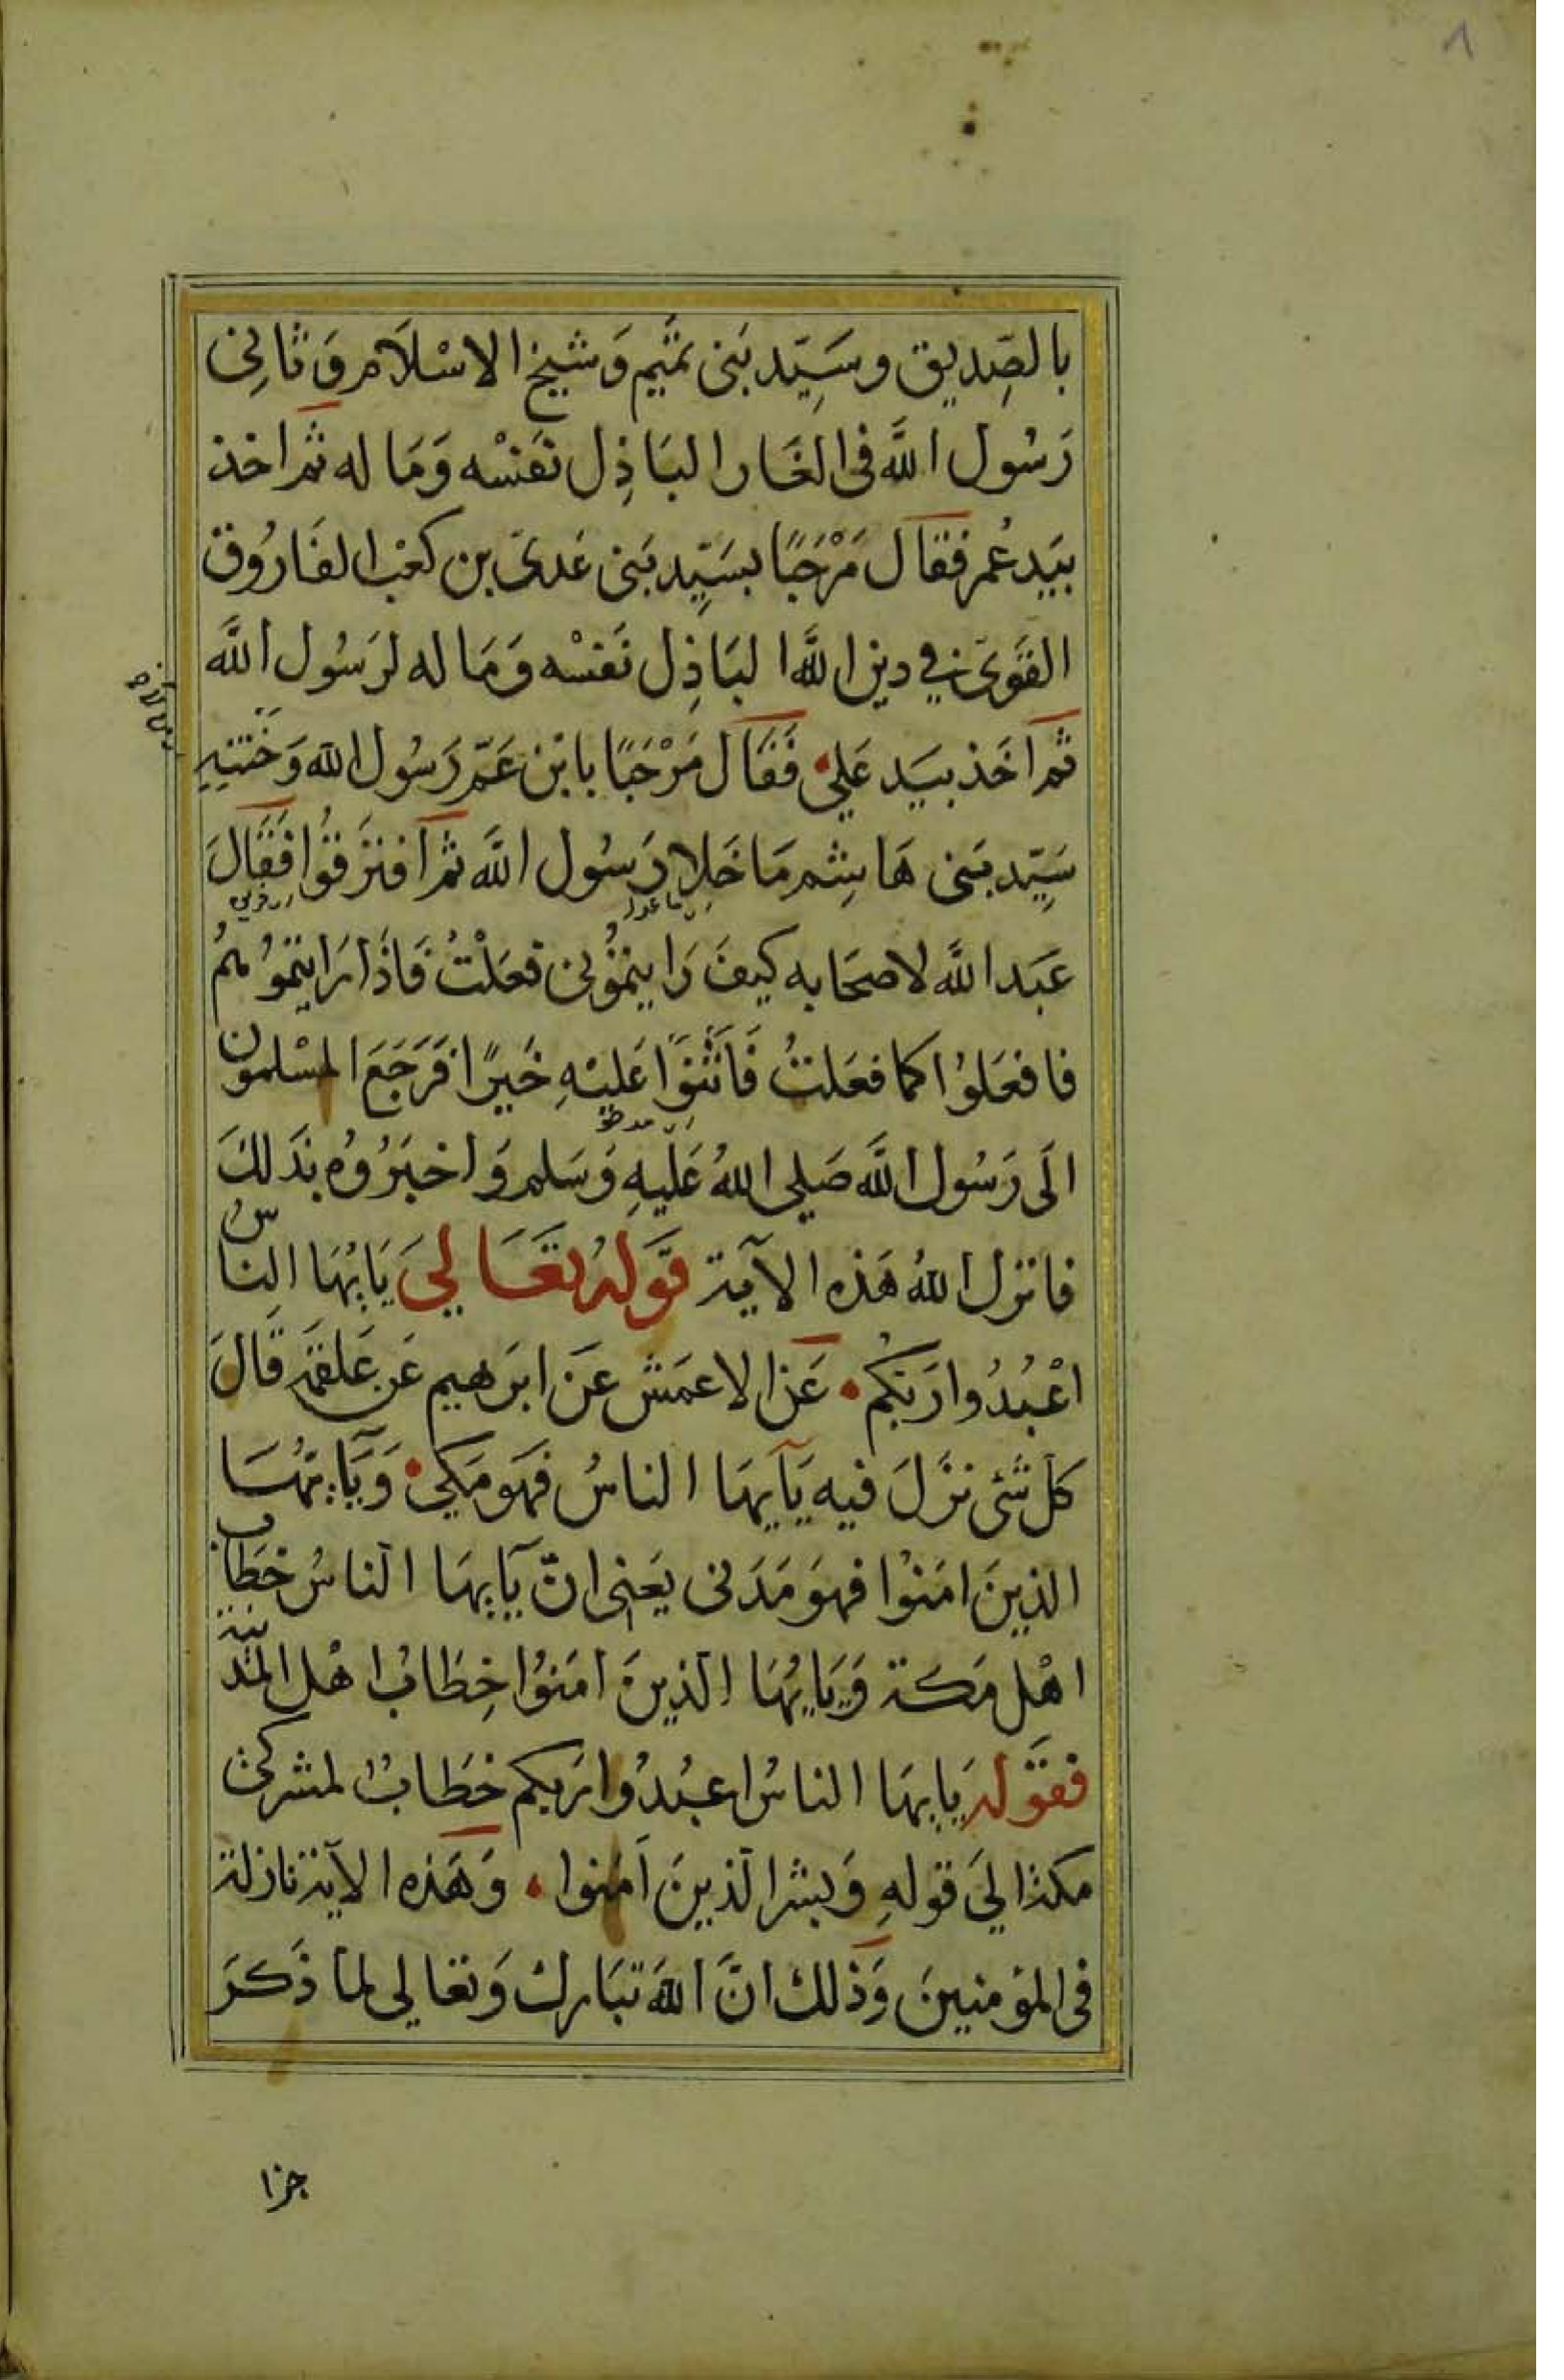 بالصِّديق وسَيِّد بَنى تمَيْم وَشيخ الاسْلاَم وَثانى
رَسُول اللَّه فى الغَار البَاذِل نَفسْه وَمَا له ثم اخذ
بيَد عُمر فقال مَرْحَبًا بسَيِّد بَنى عَدىّ بن كعْب الفَارُوق
القَوىّ فى دين اللَّه البَاذِل نَفسْه وَمَا له لرَسُول اللَّه
ثم اَخَذ بيَد عَلى فَقَال مَرْحَبًا بابْن عَمّ رَسُول الله وَخَتَنِهِ
سَيِّد بَنى هَاشِم مَا خَلا رَسُول اللَّه ثم افتَرَقوُا فَقَالَ
عَبَد اللَّه لاصحَابه كيفَ رَايتمُوُنى فعَلْتُ فَاذَا رَايتموُهُمُ
فافعَلوُا كما فعَلتُ فَاَثْنَوا عَليْهِ خَيرًا فَرَجَعَ المسْلمون
الَى رَسُول اللَّه صَلى اللهُ عَليهِ وَسَلم وَاخبَرُوُه بذَلكَ
فانزل اللهُ هَذه الآية قَولهُ تعَالىَ يَايُهَا الناسُ
اعْبُدُوا رَبكُم عَن الاعمَش عَن ابرَهيم عَن عَلقمَة قَالَ
كل شَئ نزَّلَ فيه يَآيهَا الناسُ فهَو مَكى وَيَآيهُّا
الذينَ امَنوُا فهوَ مَدَنى يعَنى انّ يَآيهَا الناسُ خطَاب
اهْل مَكة وَيَايُهَا الذينَ امَنوُا خِطَابُ اهْل المدَينة
فقَوله يايهَا الناسُ اعبُدُوا رَبكم خطَابُ لمشركى
مكة الىَ قوله وَبشر الذينَ اَمَنوا وَهَذه الآية نازلة
فى المؤمنينَ وَذلك انَّ اللهَ تبَارك وَتعَالى لما ذَكرَ
جزا